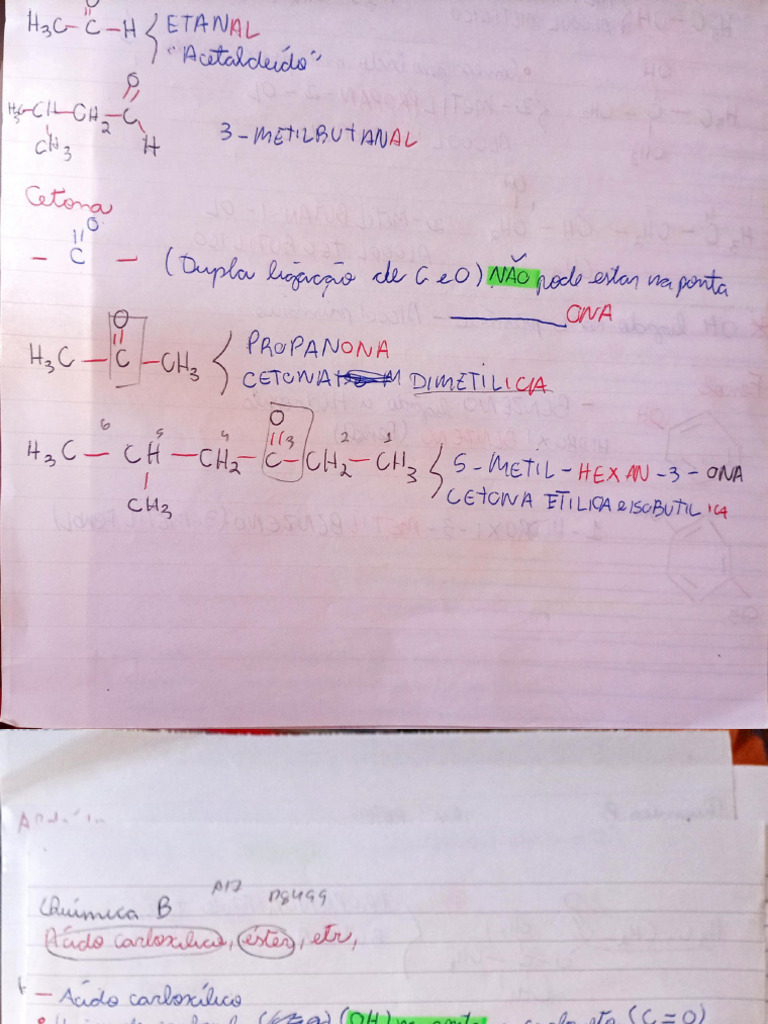 O
H₃C–C–H { ETANAL
"Acetaldeído"
O
H₃C–CH–CH₂–C
CH₃ H 3-METILBUTANAL
Cetona
O
– C – (Dupla ligação de C e O) NÃO pode estar na ponta
______ONA
O
H₃C – C – CH₃ { PROPANONA
CETONA DIMETILICA
O
6 5 4 3 2 1
H₃C – CH – CH₂ – C – CH₂ – CH₃ { 5-METIL-HEXAN-3-ONA
CH₃ CETONA ETILICA e ISOBUTILICA
Química B A17 pg499
Ácido carboxílico, éster, etr,
– Ácido carboxílico
(OH) na ponta (C=O)